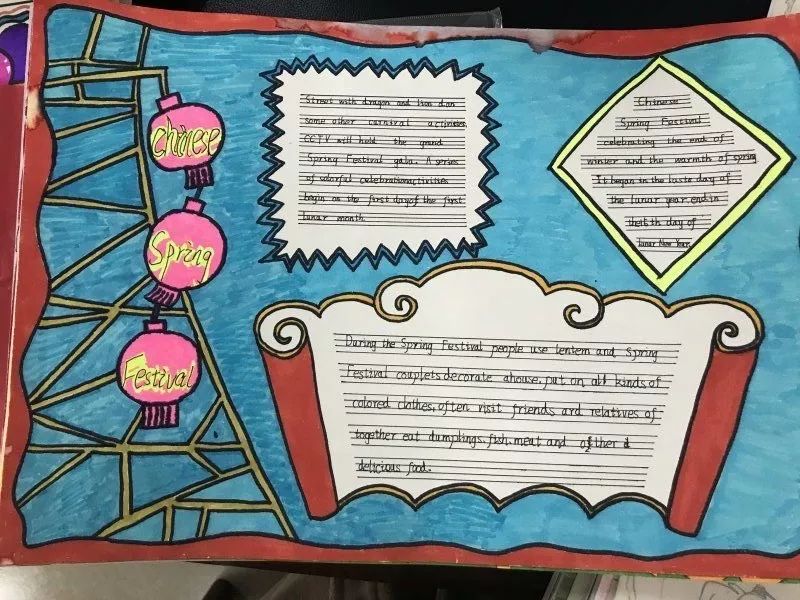 Chinese
Spring
Festival
Street with dragon and lion dan
some other carnival activities.
CCTV will hold the grand
Spring Festival gala. A series
of colorful celebrationactivities
begin on the first dayof the first
lunar month.
Chinese
Spring Festival
celebrating the end of
winter and the warmth of spring
It began in the lasta day of
the lunar year.end in
the15th day of
lunar New Year.
During the Spring Festival people use lentem and Spring
Festival couplets decorate ahouse, put on all kinds of
colored clothes, often visit friends and relatives of
together eat dumplings, fish, meat and other
delicious food.